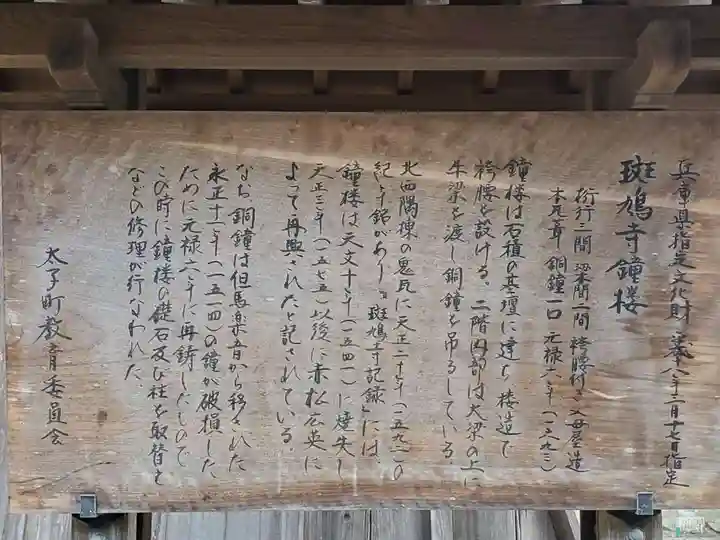 兵庫県指定文化財 昭和六十八年三月十七日指定
斑鳩寺鐘楼
桁行三間 梁間二間 袴腰付き 入母屋造
本瓦葺 銅鐘一口 元禄六年(一六九三)
鐘楼は石積の基壇に建ち楼造で
袴腰を設ける。二階内部は大梁の上に
牛梁を渡し銅鐘を吊るしている。
北西隅棟の鬼瓦に天正二十年(一五九二)の
紀年銘があり『斑鳩寺記録』には、
鐘楼は天文十年(一五四一)に焼失し
天正三年(一五七五)以後に赤松広英に
よって再興されたと記されている。
なお、銅鐘は但馬楽音から移された
永正十一年(一五一四)の鐘が破損した
ために元禄六年に再鋳したもので
この時に鐘楼の礎石及び柱を取替え
などの修理が行なわれた。
太子町教育委員会